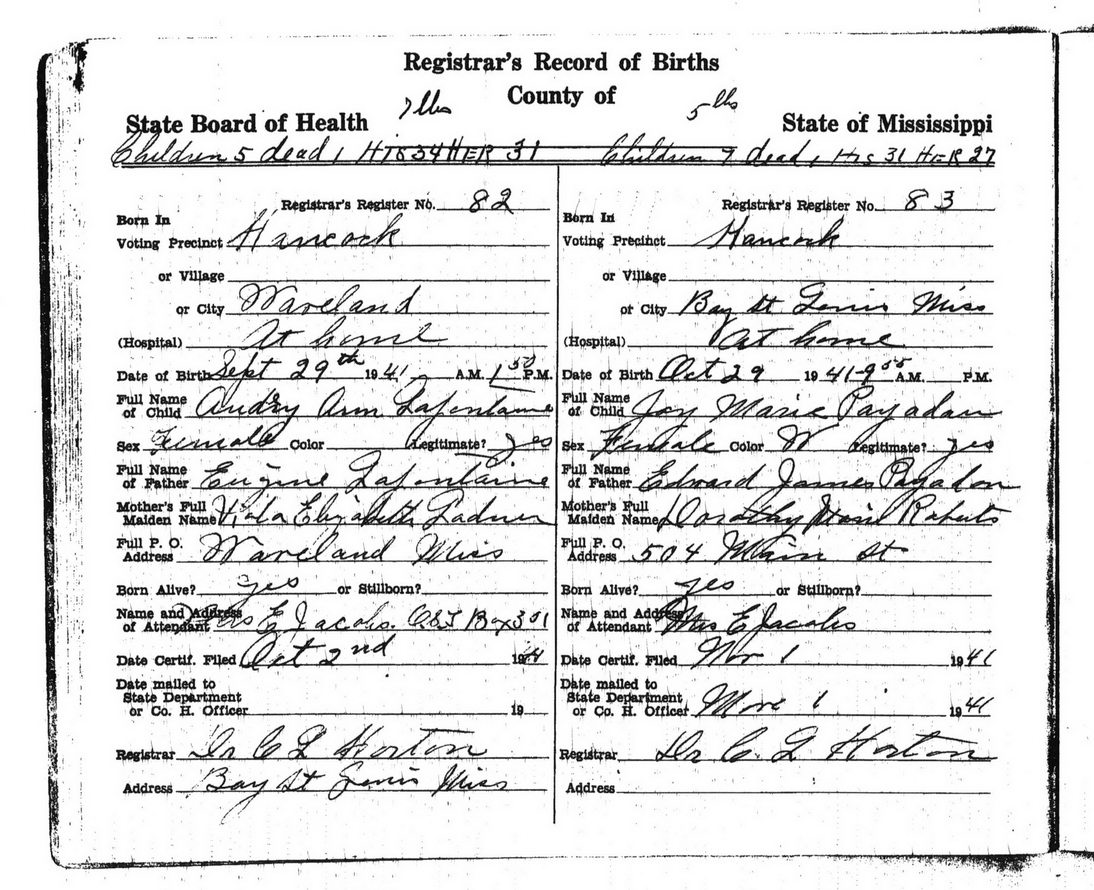 Registrar's Record of Births
County of
7 lbs 5 lbs
State Board of Health State of Mississippi
Children 5 dead 1 HIS 34 HER 31 Children 7 dead 1 HIS 31 HER 27
Registrar's Register No. 82
Born In
Voting Precinct Hancock
or Village
or City Waveland
(Hospital) At home
Date of Birth Sept 29th 1941 A.M. 1 50 P.M.
Full Name
of Child Audry Ann Lafontaine
Sex Female Color Legitimate? yes
Full Name
of Father Eugine Lafontaine
Mother's Full
Maiden Name Viola Elizabeth Ladner
Full P. O.
Address Waveland Miss
Born Alive? yes or Stillborn?
Name and Address
of Attendant Mrs E Jacobs. Box 301
Date Certif. Filed Oct 2nd 1941
Date mailed to
State Department
or Co. H. Officer 19
Registrar Dr C L Horton
Address Bay St Louis Miss
Registrar's Register No. 83
Born In
Voting Precinct Hancock
or Village
or City Bay St Louis Miss
(Hospital) At home
Date of Birth Oct 29 1941-9 55 A.M. P.M.
Full Name
of Child Joy Marie Payadau
Sex Female Color W Legitimate? yes
Full Name
of Father Edward James Payadau
Mother's Full
Maiden Name Dorothy Marie Roberts
Full P. O.
Address 504 Main St
Born Alive? yes or Stillborn?
Name and Address
of Attendant Mrs E Jacobs
Date Certif. Filed Nov 1 1941
Date mailed to
State Department
or Co. H. Officer Nov 1 1941
Registrar Dr C. L Horton
Address